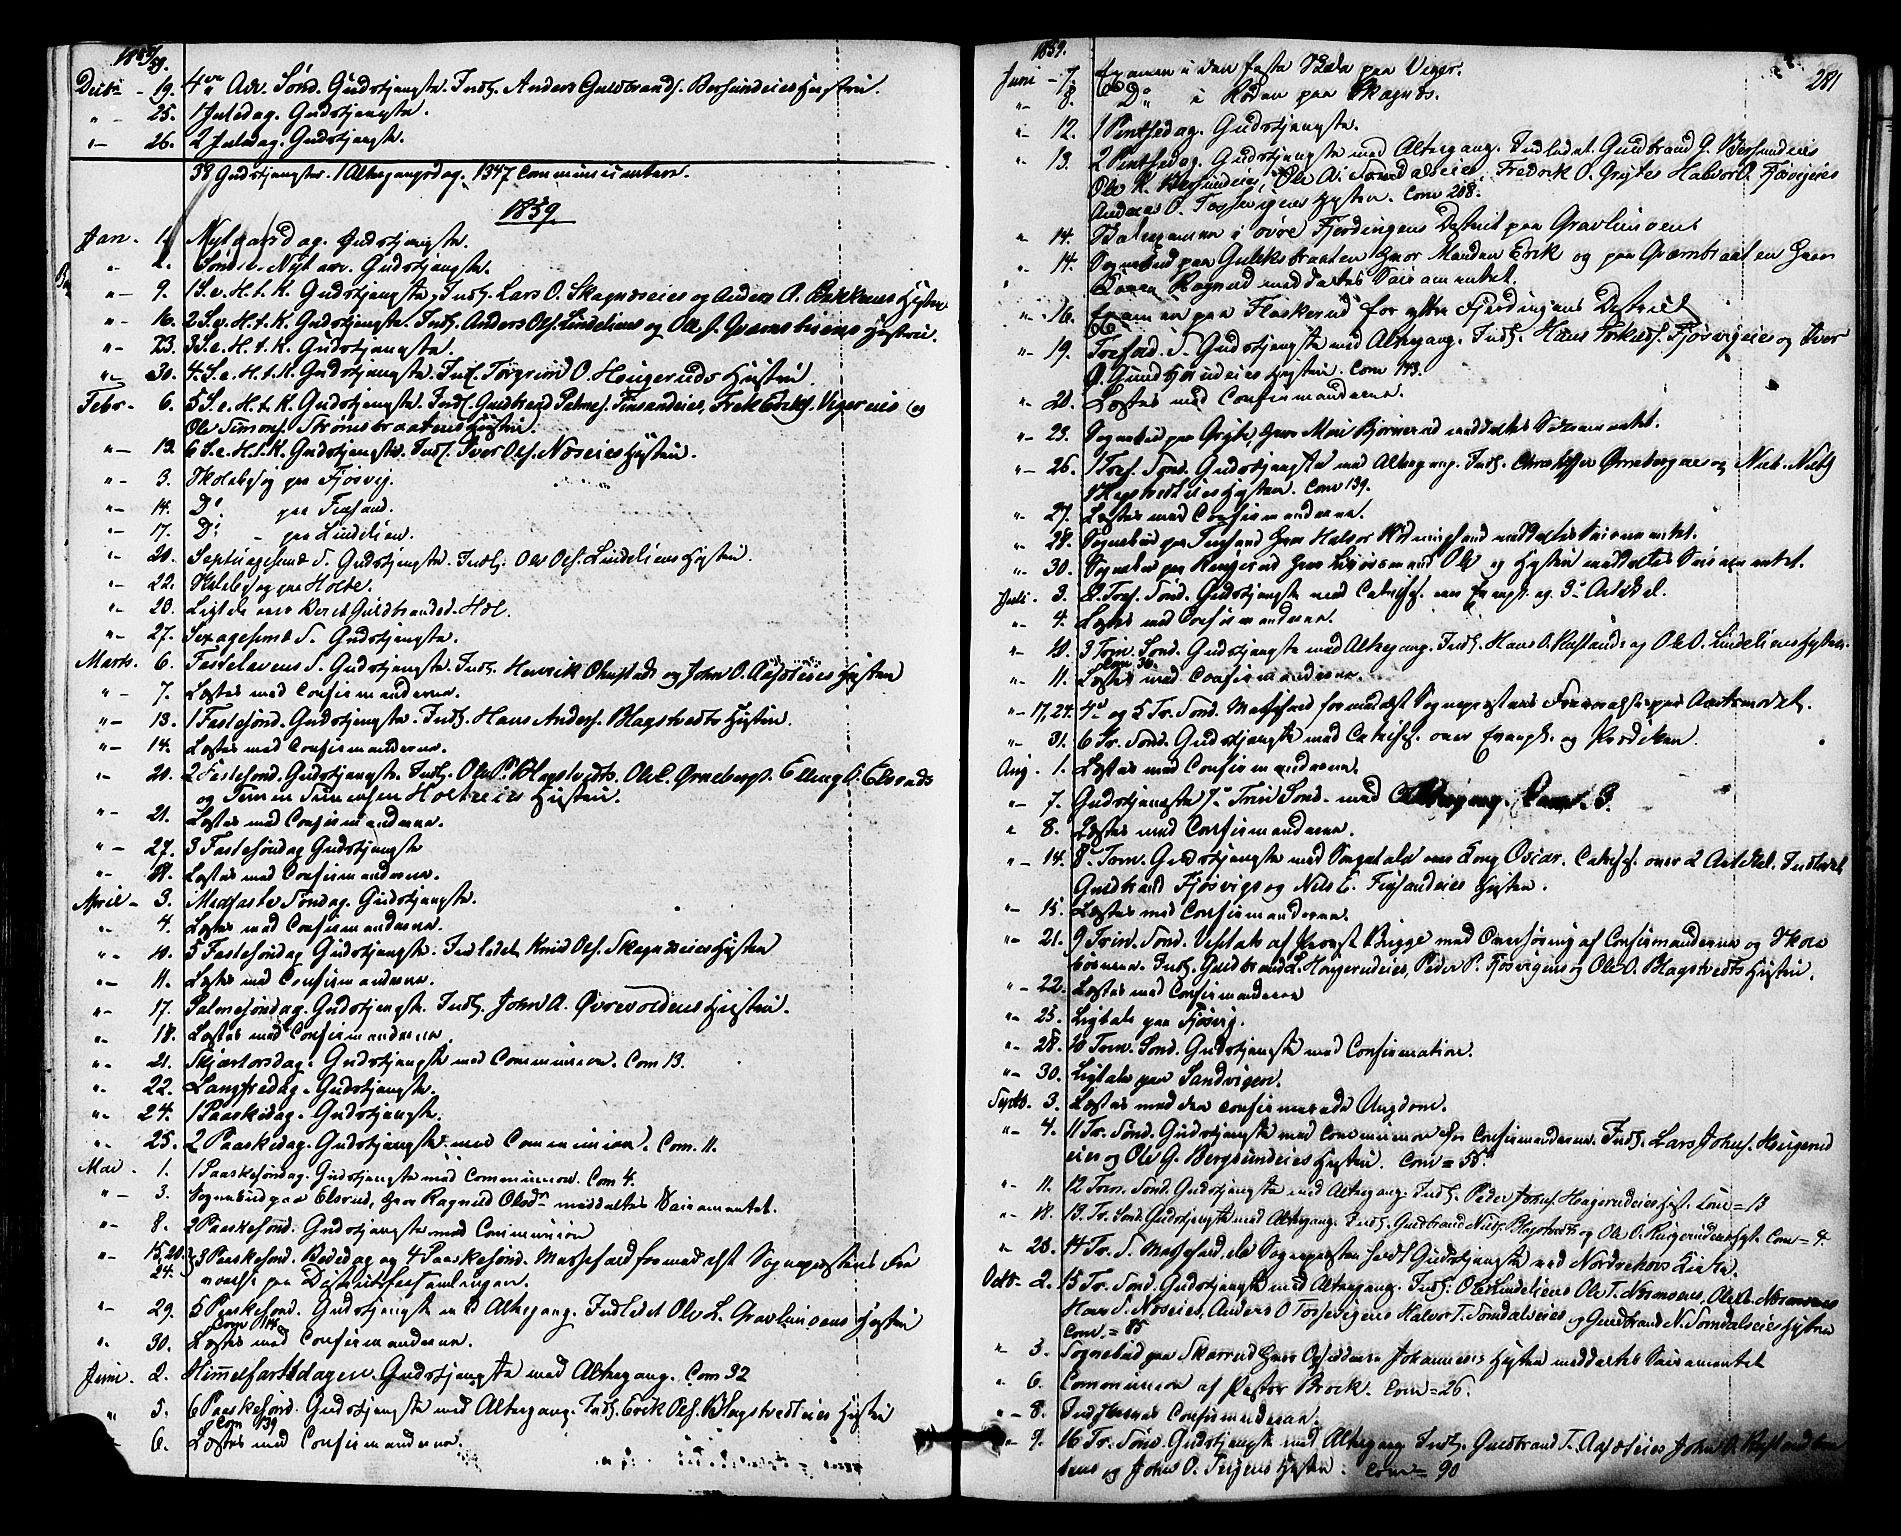 1858/59.
Decbr - 19. 4de Adv. Sønd. Gudstjeneste. Indl. Anders Guldbrands. Bersundeies Hustru.
" - 25. 1 Juledag. Gudstjeneste.
" - 26. 2 Juledag. Gudstjeneste.
38 Gudstjenester. 1 Altergangsdag. 1347 Communicantere.
1859
Jan. 1. Nytaarsdag. Gudstjeneste.
" - 2. Sønd. e. Nyt aar. Gudstjeneste.
" - 9. 1 S. e. H. t. K. Gudstjeneste, Indl. Lars O. Skagnæseies og Anders A. Bakkenes Hustru
" - 16. 2 S. e. H. t. K. Gudstjeneste. Indl. Anders Ols. Lindeliens og Ole J. Hustru.
" - 23. 3 S. e. H. t. K. Gudstjeneste.
" - 30. 4. S. e. H. t. K. Gudstjeneste. Indl. Torgrim O. Hougeruds Hustru.
Febr - 6. 5 S. e. H. t. K. Gudstjeneste. Indl. Guldbrand Finsandeies, Fredk Eriks. Vegereies og
Ole Simons. Strømsbraatens Hustru.
" - 13. 6 S. e. H. t. K. Gudstjeneste. Indl. Iver Ols. Næseies Hustru.
" - 3. Skolebesøg paa Fjøsvig.
" - 14. Do paa Finsand.
" - 17. Do - paa Lindelien.
" - 20. Septuagesima S. Gudstjeneste. Indl. Ole Ols. Lindeliens Hustru.
" - 22. Skolebesøg paa Holte.
" - 20. Ligtale over Beret Guldbrandsd. Hol.
" - 27. Sexagesima S. Gudstjeneste.
Marts. 6. Fastelavens S. Gudstjeneste. Indl. Henrik Olmstads og John O. Aasleies Hustru
" - 7. Læstes med Confirmanderne.
" - 13. 1 Fastesønd. Gudstjeneste. Indl. Hans Anders. Blagstvedts Hustru.
" - 14. Læstes med Confirmanderne.
" - 20. 2 Fastesønd. Gudstjeneste. Indl. Ole P. Blagstvedts, Ole E. Ørnebergs. Elling G. Elsruds
og Simen Simensen Holteeies Hustru.
" - 21. Læstes med Confirmanderne.
" - 27. 3 Fastesøndag Gudstjeneste
" - 28. Læstes med Confirmanderne.
April - 3. Midfaste Søndag. Gudstjeneste.
" - 4. Læstes med Confirmanderne.
" - 10. 5 Fastesøndag Gudstjeneste. Indledet Knud Ols. Skagnæseies Hustru
" - 11. Læstes med Confirmanderne.
" - 17. Palmesøndag. Gudstjeneste. Indl. John A. Øvrevoldens Hustru.
" - 18. Læstes med Confirmanderne.
" - 21. Skjærtorsdag. Gudstjeneste med Communion. Com 13.
" - 22. Langfredag. Gudstjeneste.
" - 24. 1 Paaskedag. Gudstjeneste.
" - 25. 2 Paaskedag. Gudstjeneste med Communion. Com. 11.
Mai - 1. 1 Paaskesøndag. Gudstjeneste med Communion. Com 4.
" - 3. Sognebud paa Elsrud, hvor Ragnild Olsdr meddeltes Sacramentet.
" - 8. 2 Paaskesønd. Gudstjeneste med Communion
" - 15, 20. 24. 3 Paaskesønd. Bededag og 4 Paaskesønd. Messefald formedelst Sognepræstens Fra-
værelse paa
" - 29. 5 Paaskesønd. Gudstjeneste med Altergang. Indledet Ole L. Gravlimoens Hustru
" - 30. Læstes med Confirmanderne.
Juni - 2. Himmelfartsdagen. Gudstjeneste med Altergang. Com 92
" - 5. 6 Paaskesønd. Gudstjeneste med Altergang. Indl. Erik Ols. Blagstvedteies Hustru
Com 139
" - 6. Læstes med Confirmanderne.
281
1859.
Juni - 7. Examen i den faste Skole paa Veger.
" - 8. Do i Roden paa Skagnæs.
" - 12. 1 Pintsedag. Gudstjeneste.
" - 13. 2 Pintsedag. Gudstjeneste med Altergang. Indledet Guldbrand G. Bersundeies
Ole K. Bersundeies, Ole A. Somdalseies, Fredrik O. Grytes Halvor O. Fjøsvigeies
Anders O. Tossevigens Hustru. Com 208.
" - 14. Examen i øvre Fjerdingens District paa Gravlimoen
" - 14. Sognebud paa Gulsbraaten hvor Manden Erik og paa Grønbraaten hvor
Konen Ragnild meddeltes Sacramentet.
" - 16. Examen paa Flaskerud for ytre Fjerdingens District
" - 19. Trefold. S. Gudstjeneste med Altergang. Indl. Hans Fjøsvigeies og Iver
G. Gundhuseies Hustru. Com 173.
" - 20. Læstes med Confirmanderne.
" - 23. Sognebud paa Gryte, hvor Mari Bjørnerud meddeltes Sacramentet.
" - 26. 1 Tref. Sønd. Gudstjeneste med Altergang. Indl. Christoffer Ørnebergseies og Niels Niels
Blagstvedteies Hustru. Com 139.
" - 27. Læstes med Confirmanderne.
" - 28. Sognebud paa Finsand hvor Halvor meddeltes Sacramentet.
" - 30. Sognebud paa Rungerud hvor Ole og Hustru meddeltes Sacramentet.
Juli - 3. 2. Tref. Sønd. Gudstjeneste med Catechis. over Evangl. og 3die Artikel.
" - 4. Læstes med Confirmanderne.
" - 10. 3 Trin. Sønd. Gudstjeneste med Altergang. Indl. Hans O. Roslands og Ole O. Lindeliens Hustru.
Com 36.
" - 11. Læstes med Confirmanderne.
" - 17, 24. 4de og 5 Tr. Sønd. Messefald formedelst Sognepræstens Fraværelse paa Amtsmødet.
" - 31. 6 Tr. Sønd. Gudstjeneste med Catechis. over Evangl. og Prædiken.
Aug. 1. Læstes med Confirmanderne.
" - 7. Gudstjeneste 7de Trin Sønd. med Altergang. Com. 3.
" 8. Læstes med Confirmanderne.
" - 14. 8de Trin. Gudstjeneste med Sørgetale over Kong Oscar. Catechis. over 2 Artikel. Indledet
Guldbrand Fjøsvigs og Nils E. Finsandeies Hustru.
" - 15. Læstes med Confirmanderne.
" - 21. 9 Trin. Sønd. Visitats af Provst Bugge med Overhøring af Confirmanderne og Skole
børnene. Indl. Guldbrand L. Hougerudeies, Peder P. Fjøsvigens og Ole O. Blagstvedts Hustru.
" - 22. Læstes med Confirmanderne
" - 25. Ligtale paa Fjøsvig.
" - 28. 10 Trin. Sønd. Gudstjeneste med Confirmation.
" - 30. Ligtale paa Sandvigen.
Septb. 3. Læstes med den confirmerede Ungdom.
" - 4. 11 Tr. Sønd. Gudstjeneste med Communion for Confirmanderne. Indl. Lars Johns. Hougerud
eies og Ole G. Bergsundeies Hustru. Com = 55.
" - 11. 12 Trin. Sønd. Gudstjeneste med Altergang. Indl. Peder Hougerudeies Hust. Com = 13
" - 18. 13. Tr. Sønd. Gudstjeneste med Altergang. Indl. Guldbrand Niels. Blagstvedts og Ole O. Rungerudeies Hust. Com = 4.
" 25. 14 Tr. S. Messefald, da Sognepræsten holdt Gudstjeneste ved Norderhovs Kirke.
Octb. 2. 15 Tr. Sønd. Gudstjeneste med Altergang. Indl. Ole Lindeliens Ole T. Næsmoens, Ole
Hans S. Næseies, Anders O Tossevigens Halvor T. Somdalseies og Guldbrand N. Somdalseies Hustru
Com. = 85
" 3. Sognebud paa Skarrud hvor Johannes's Hustru meddeltes Sacramentet
" 6. Communion af Pastor Brock. Com = 26.
" - 8. Confirmanderne.
" - 9. 16 Tr. Sønd. Gudstjeneste med Altergang. Indl. Guldbrand T. Aasleies John O.
og John O. Hustru. Com = 90